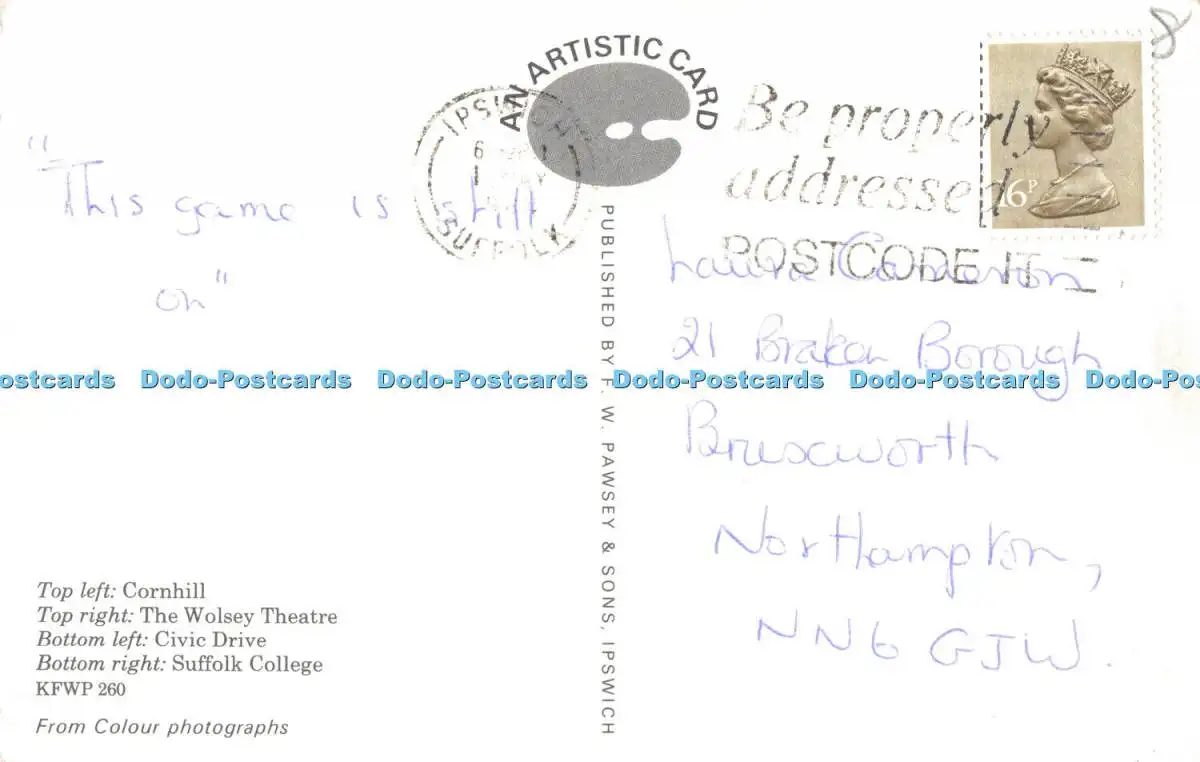 AN ARTISTIC CARD
IPSWICH
6
MAY
SUFFOLK
Be properly
addressed
POSTCODE IT
16P
8
"This game is still
on"
PUBLISHED BY F. W. PAWSEY & SONS, IPSWICH
Laura Cameron
21 Braken Borough
Brixworth
Northampton,
NN6 GJW.
Dodo-Postcards Dodo-Postcards Dodo-Postcards Dodo-Postcards
Top left: Cornhill
Top right: The Wolsey Theatre
Bottom left: Civic Drive
Bottom right: Suffolk College
KFWP 260
From Colour photographs